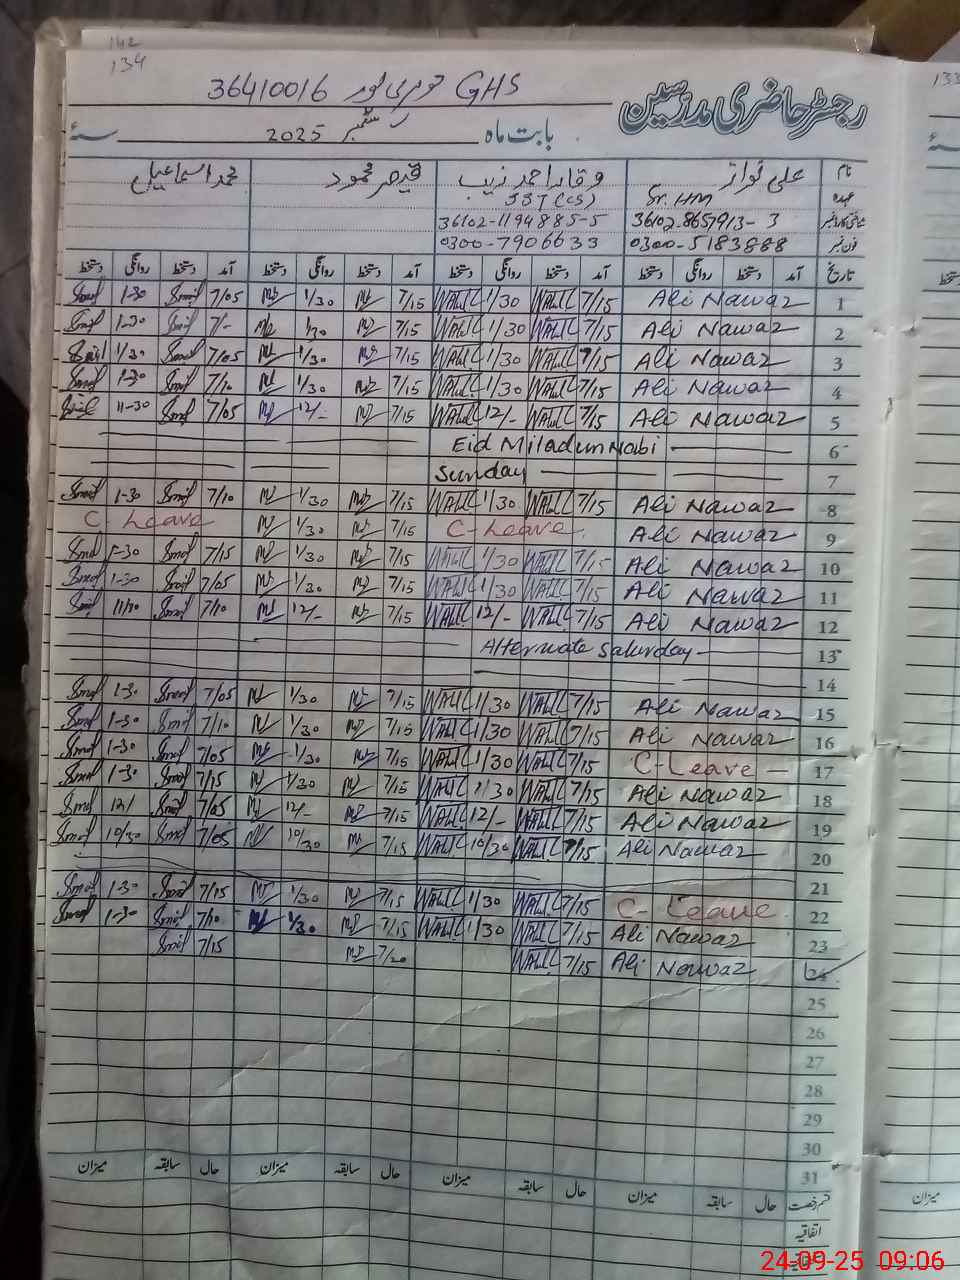 142
134
133
36410016 GHS
رجسٹر حاضری مدرسین
بابت ماہ ستمبر 2025 سنۂ
نام علی نواز وقار احمد زیب قیصر محمود محمد اسماعیل
عہدہ Sr. HM SST (CS)
36102-8657913-3 36102-1194885-5
فون نمبر 0300-5183888 0300-7906633
تاریخ آمد دستخط روانگی دستخط آمد دستخط روانگی دستخط آمد دستخط روانگی دستخط آمد دستخط روانگی دستخط
1-30 7/05 1/30 7/15 1/30 7/15 Ali Nawaz 1
1-30 7/- 1/30 7/15 1/30 7/15 Ali Nawaz 2
1/30 7/05 1/30 7/15 1/30 7/15 Ali Nawaz 3
1-30 7/10 1/30 7/15 1/30 7/15 Ali Nawaz 4
11-30 7/05 12/- 7/15 12/- 7/15 Ali Nawaz 5
Eid Miladun Nabi 6
Sunday 7
1-30 7/10 1/30 7/15 1/30 7/15 Ali Nawaz 8
C- Leave 1/30 7/15 C-Leave Ali Nawaz 9
1-30 7/15 1/30 7/15 1/30 7/15 Ali Nawaz 10
1-30 7/05 1/30 7/15 1/30 7/15 Ali Nawaz 11
11/10 7/10 12/- 7/15 12/- 7/15 Ali Nawaz 12
Alternate Saturday 13
14
1-30 7/05 1/30 7/15 1/30 7/15 Ali Nawaz 15
1-30 7/10 1/30 7/15 1/30 7/15 Ali Nawaz 16
1-30 7/05 1/30 7/15 1/30 7/15 C-Leave 17
1-30 7/15 1/30 7/15 1/30 7/15 Ali Nawaz 18
12/ 7/05 12/- 7/15 12/- 7/15 Ali Nawaz 19
10/30 7/05 10/30 7/15 10/30 7/15 Ali Nawaz 20
21
1-30 7/15 1/30 7/15 1/30 7/15 C- Leave 22
1-30 7/10 1/30 7/15 1/30 7/15 Ali Nawaz 23
7/15 7/20 7/15 Ali Nawaz 24
25
26
27
28
29
30
31
قسم رخصت حال سابقہ میزان حال سابقہ میزان حال سابقہ میزان حال سابقہ میزان
میزان
اتفاقیہ
24-09-25 09:06